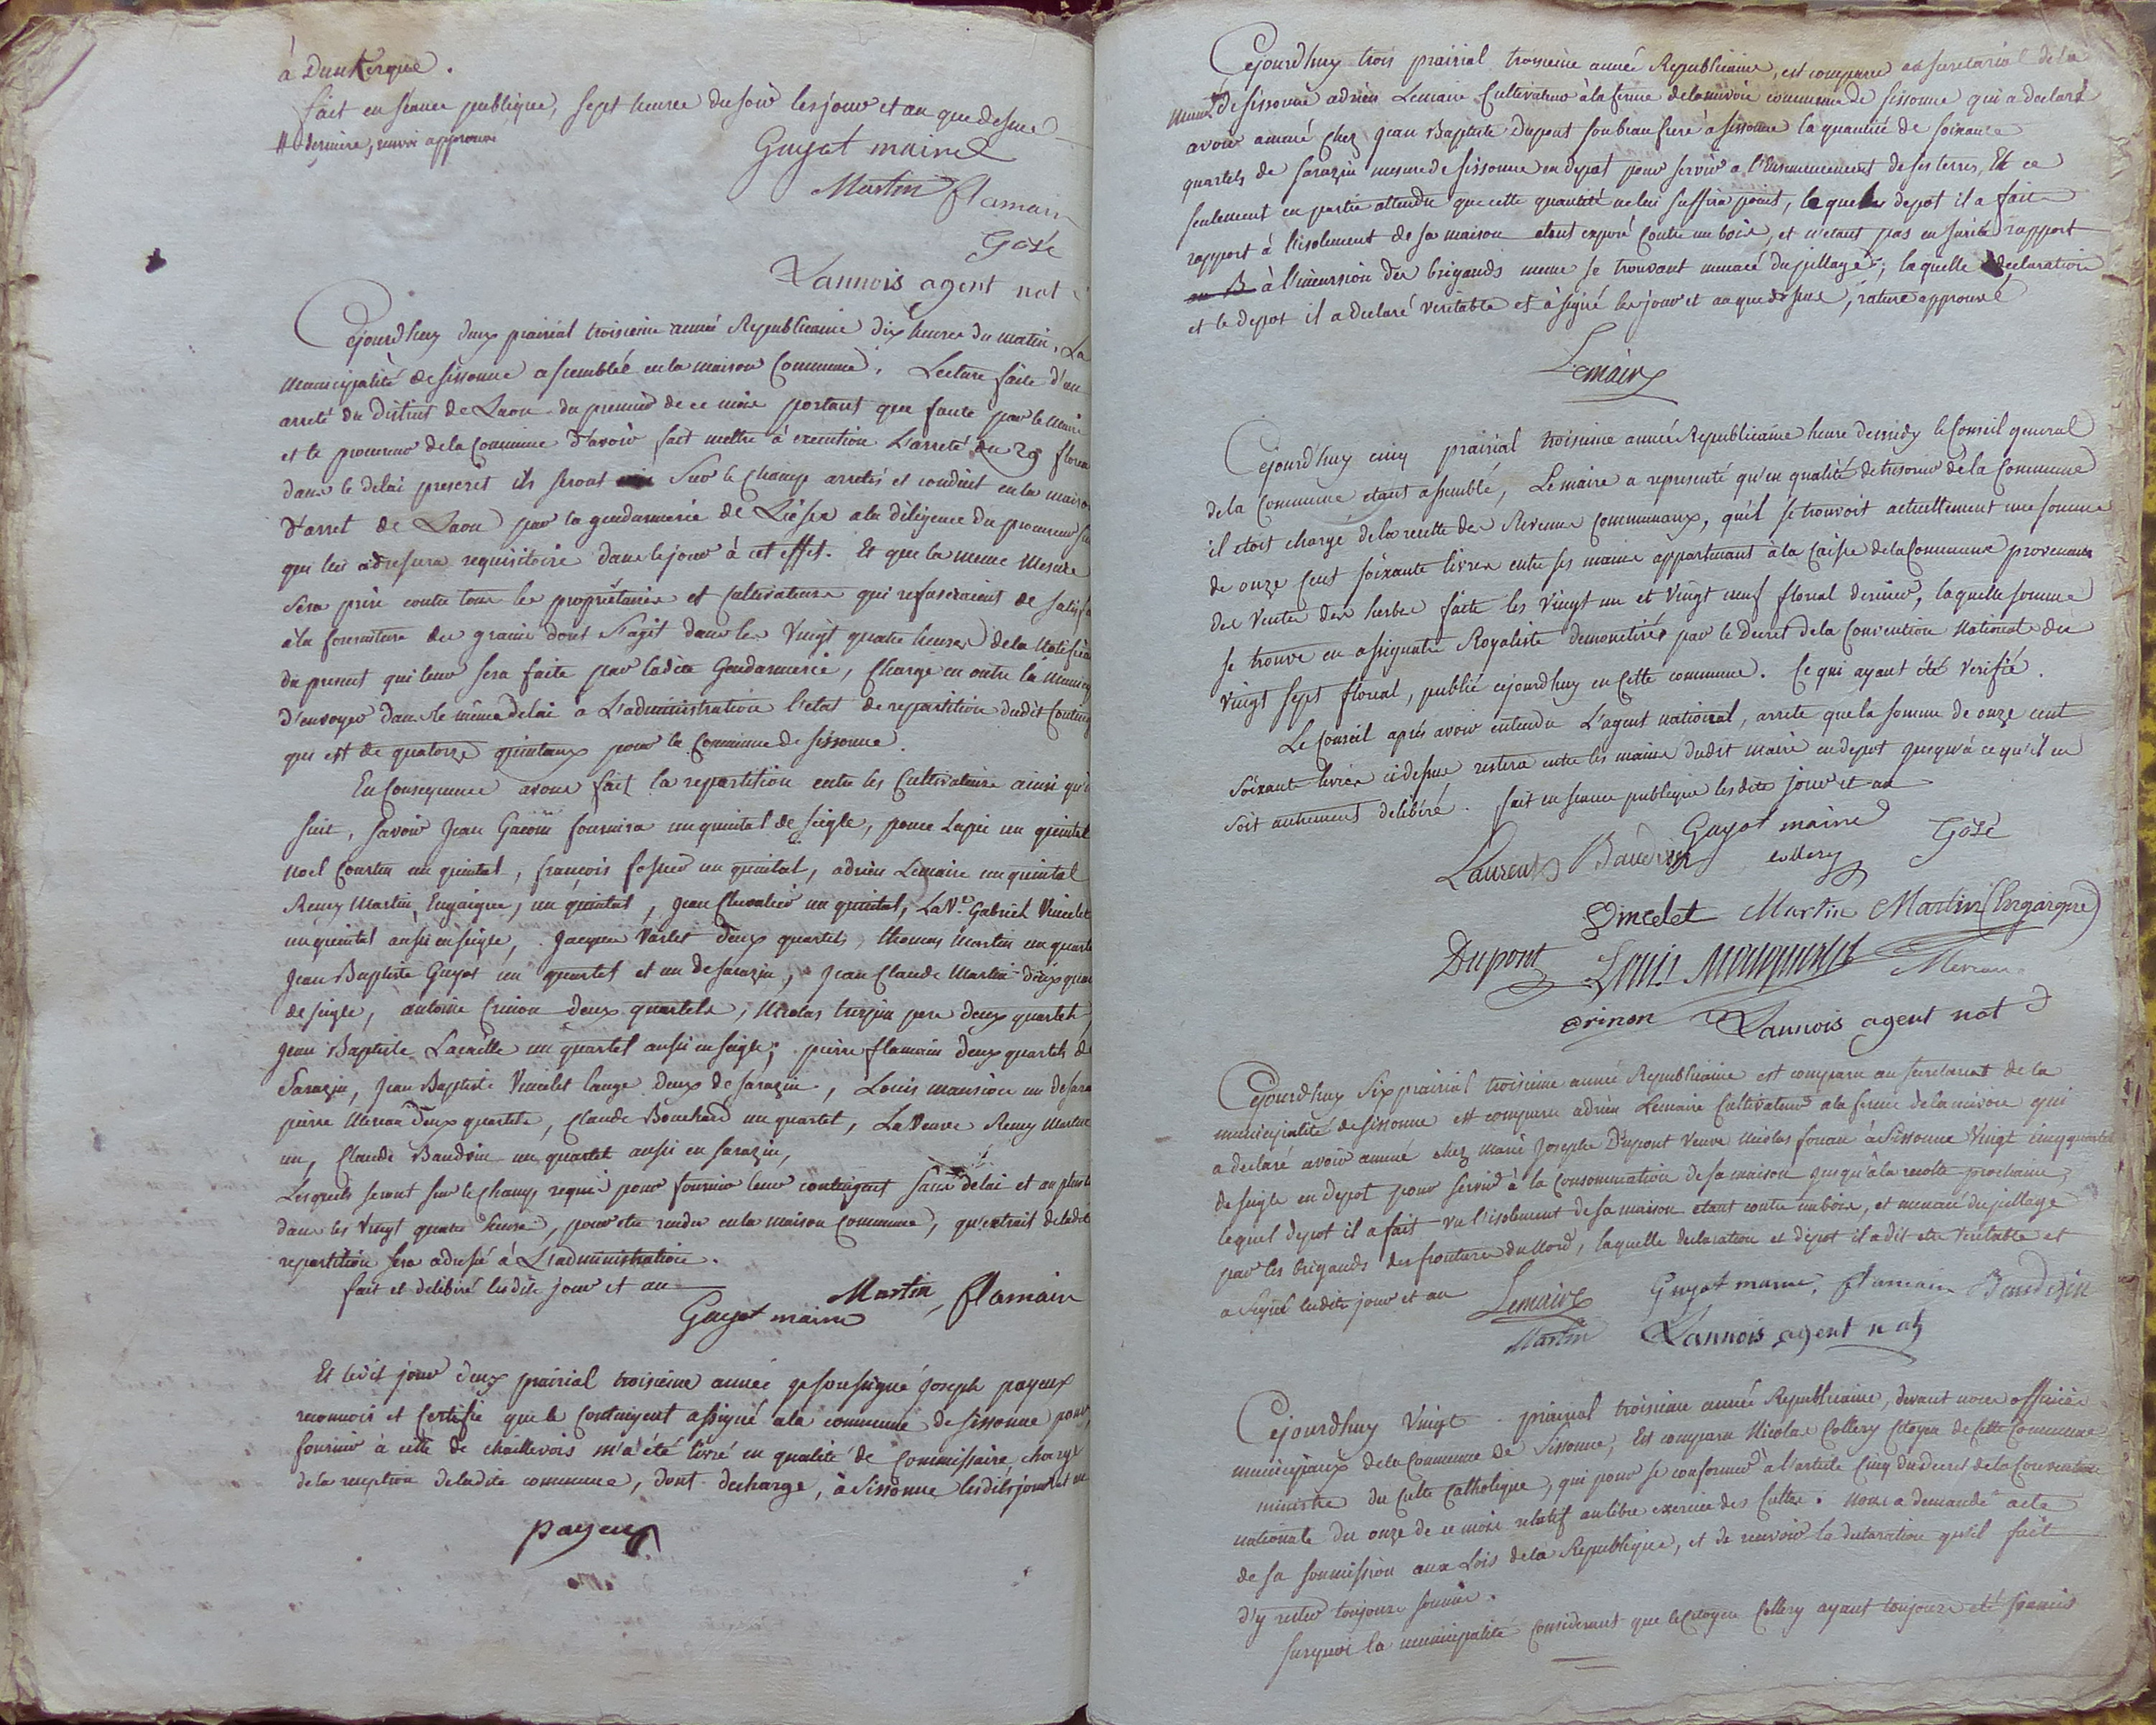 à Dunkerque.
fait en séance publique, sept heures du soir les jour et an que dessus
# derniere, renvoi approuvé
Guyot maire
Martin flamain
Gosé
Lannois agent nat
Cejourdhuy deux prairial troisieme année Republicaine dix heures du matin, La
municipalité de sissonne assemblée en la maison Commune, Lecture faite d'un
arreté du District de Laon du premier de ce mois portant que faute par le Maire
et le procureur de la Commune d'avoir fait mettre à execution L'arreté du 29 floreal
dans le delai prescrit ils seront sur le Champ arretés et conduit en la maison
d'arret de Laon par la gendarmerie de Liesse a la diligence du procureur
qui lui adressera requisitoire dans le jour à cet effet. Et que la meme Mesure
Sera prise contre tous les propriétaires et Cultivateurs qui refuseraient de satisf
à la fourniture des grains dont s'agit dans les Vingt quatre heures de la Notifica
du present qui leur sera faite par ladite Gendarmerie, Charge en outre la munici
d'envoyer dans le même délai a L'administration l'etat de repartition dudit Conting
qui est de quatorze quintaux pour la Commune de sissonne.
En Consequence avons fait la repartition entre les Cultivateurs ainsi qu'il
suit, savoir Jean fournira un quintal de seigle, ponce Lapie un quintal
Noel Courtin un quintal, françois un quintal, adrien Lemaire un quintal
Remy Martin, Engaigne, un quintal, Jean Chevalier un quintal, La Ve. Gabriel Vincelet
un quintel aussi en seigle, Jacques Varlet deux quartels, thomas Martin un quart
Jean Baptiste Guyot un quartel et un de sarazin, Jean Claude Martin deux quar
de seigle, antoine Crinon deux quartels, Nicolas turpin pere deux quartels,
Jean Baptiste Lacaille un quartel aussi en seigle; pierre flamain deux quartels de
Sarazin, Jean Baptiste Vincelet lange deux de sarazin, Louis mansion un de sara
pierre Mereau deux quartels, Claude Bouchard un quartel, La Veuve Remy Martin
un, Claude Baudvin un quartel aussi en sarazin,
Lesquels seront sur le champ requis pour fournir leur contingent sans délai et au plus
dans les Vingt quatre heures, pour etre rendu en la maison Commune, qu'extrait de ladite
repartition sera adressé à L'administration.
fait et deliberé lesdits jour et an
Guyot maire Martin flamain
Et ledit jour deux prairial troisieme année je soussigné Joseph payeux
reconnois et Certifie que le Contingent assigné a la commune de sissonne pour
fournir à celle de chaillevois m'a été livré en qualité de Commissaire chargé
de la reception de ladite commune, dont decharge, à Sissonne lesdits jour et an
payeux
Cejourd'huy trois prairial troisieme année Republicaine, est comparu au secretariat de la
munté de sissonne adrien Lemaire Cultivateur à la ferme de commune de sissonne qui a declaré
avoir amené Chez Jean Baptiste Dupont son beau frere à sissonne la quantité de soixante
quartels de sarazin mesure de sissonne en depot pour servir a l'ensemencement de ses terres, Et ce
seulement en partie attendu que cette quantité ne lui suffira point, lequel depot il a fait
rapport à l'isolement de sa maison etant exposé Contre un bois, et n'etant pas en sureté rapport
à l'incursion des brigands meme se trouvant menacé du pillage; laquelle declaration
et le depot il a declaré veritable et a signé les jour et an que dessus, rature approuvé
Lemaire
Cejourd'huy cinq prairial troisieme année Republicaine heure de midy le Conseil general
de la Commune etant assemblé, Le maire a representé qu'en qualité de tresorier de la Commune
il etoit chargé de la recette des Revenus Communaux, qu'il se trouvoit actuellement une somme
de onze Cent soixante livres entre ses mains appartenant à la Caisse de la Commune provenant
des Ventes des herbes faite les Vingt un et Vingt neuf floreal dernier, laquelle somme
se trouve en assignats Royaliste demonetisés par le Decret de la Convention Nationale du
Vingt sept floreal, publié cejourdhuy en Cette commune. Ce qui ayant été verifié.
Le Conseil après avoir entendu L'agent national, arrete que la somme de onze cent
soixante livres cidessus restera entre les mains dudit maire en depot jusqu'à ce qu'il en
soit autrement deliberé. fait en seance publique lesdits jour et an
Guyot maire Gosé
Laurent Baudvin collery
Vincelet Martin Martin (Engaigne)
Dupont Louis Mereau
crinon Lannois agent nat
Cejourd'huy Six prairial troisieme année Republicaine est comparu au secretariat de la
municipalité de sissonne est comparu adrien Lemaire Cultivateur a la ferme de qui
a declaré avoir amené chez Marie Josephe Dupont Veuve Nicolas fouan à Sissonne Vingt cinq quartels
de seigle en depot pour servir à la Consommation de sa maison jusqu'à la recolte prochaine,
lequel depot il a fait vu l'isolement de sa maison etant contre un bois, et menacé du pillage
par les brigands des frontieres du Nord, laquelle declaration et depot il a dit etre Veritable et
a signé lesdits jour et an Lemaire Guyot maire, flamain Baudvin
Martin Lannois agent nat
Cejourd'huy Vingt prairial troisieme année Republicaine, devant nous officiers
municipaux de la Commune de Sissonne, Est comparu Nicolas Collery Citoyen de Cette Commune
ministre du Culte Catholique, qui pour se conformer à l'article Cinq du decret de la Convention
nationale du onze de ce mois relatif au libre exercice des Cultes. Nous a demandé acte
de sa soumission aux Lois de la Republique, et de recevoir la declaration qu'il fait
d'y rester toujours soumis.
Surquoi la municipalité Considerant que le Citoyen Collery ayant toujours été soumis